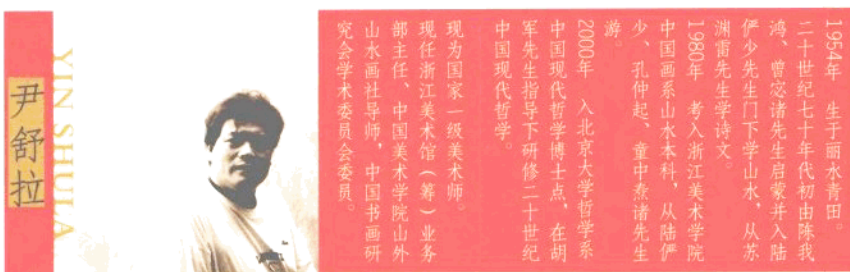 尹舒拉
YIN SHULA
1954年　生于丽水青田。
二十世纪七十年代初由陈我
鸿、曾宓诸先生启蒙并入陆
俨少先生门下学山水，从苏
渊雷先生学诗文。
1980年　考入浙江美术学院
中国画系山水本科，从陆俨
少、孔仲起、童中焘诸先生
游。
2000年　入北京大学哲学系
中国现代哲学博士点，在胡
军先生指导下研修二十世纪
中国现代哲学。
现为国家一级美术师。
现任浙江美术馆（筹）业务
部主任、中国美术学院山外
山水画社导师，中国书画研
究会学术委员会委员。